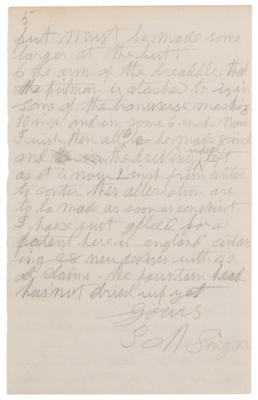 5
but must be made some
larger at the but.
6 the arm of the treaddle that
the pitmon is atached to is in
some of the transverse machin
10 inch and in some 6 inch now
I wish them all to be made 8 inch
and the driving left
as it is now 2 inch from center
to center thes alteration are
to be made as soon as
I have just aplied for a
patent here in england
ing 28 new devises with 90
of claims. the fountain head
has not dried up yet
Yours
I M Singer